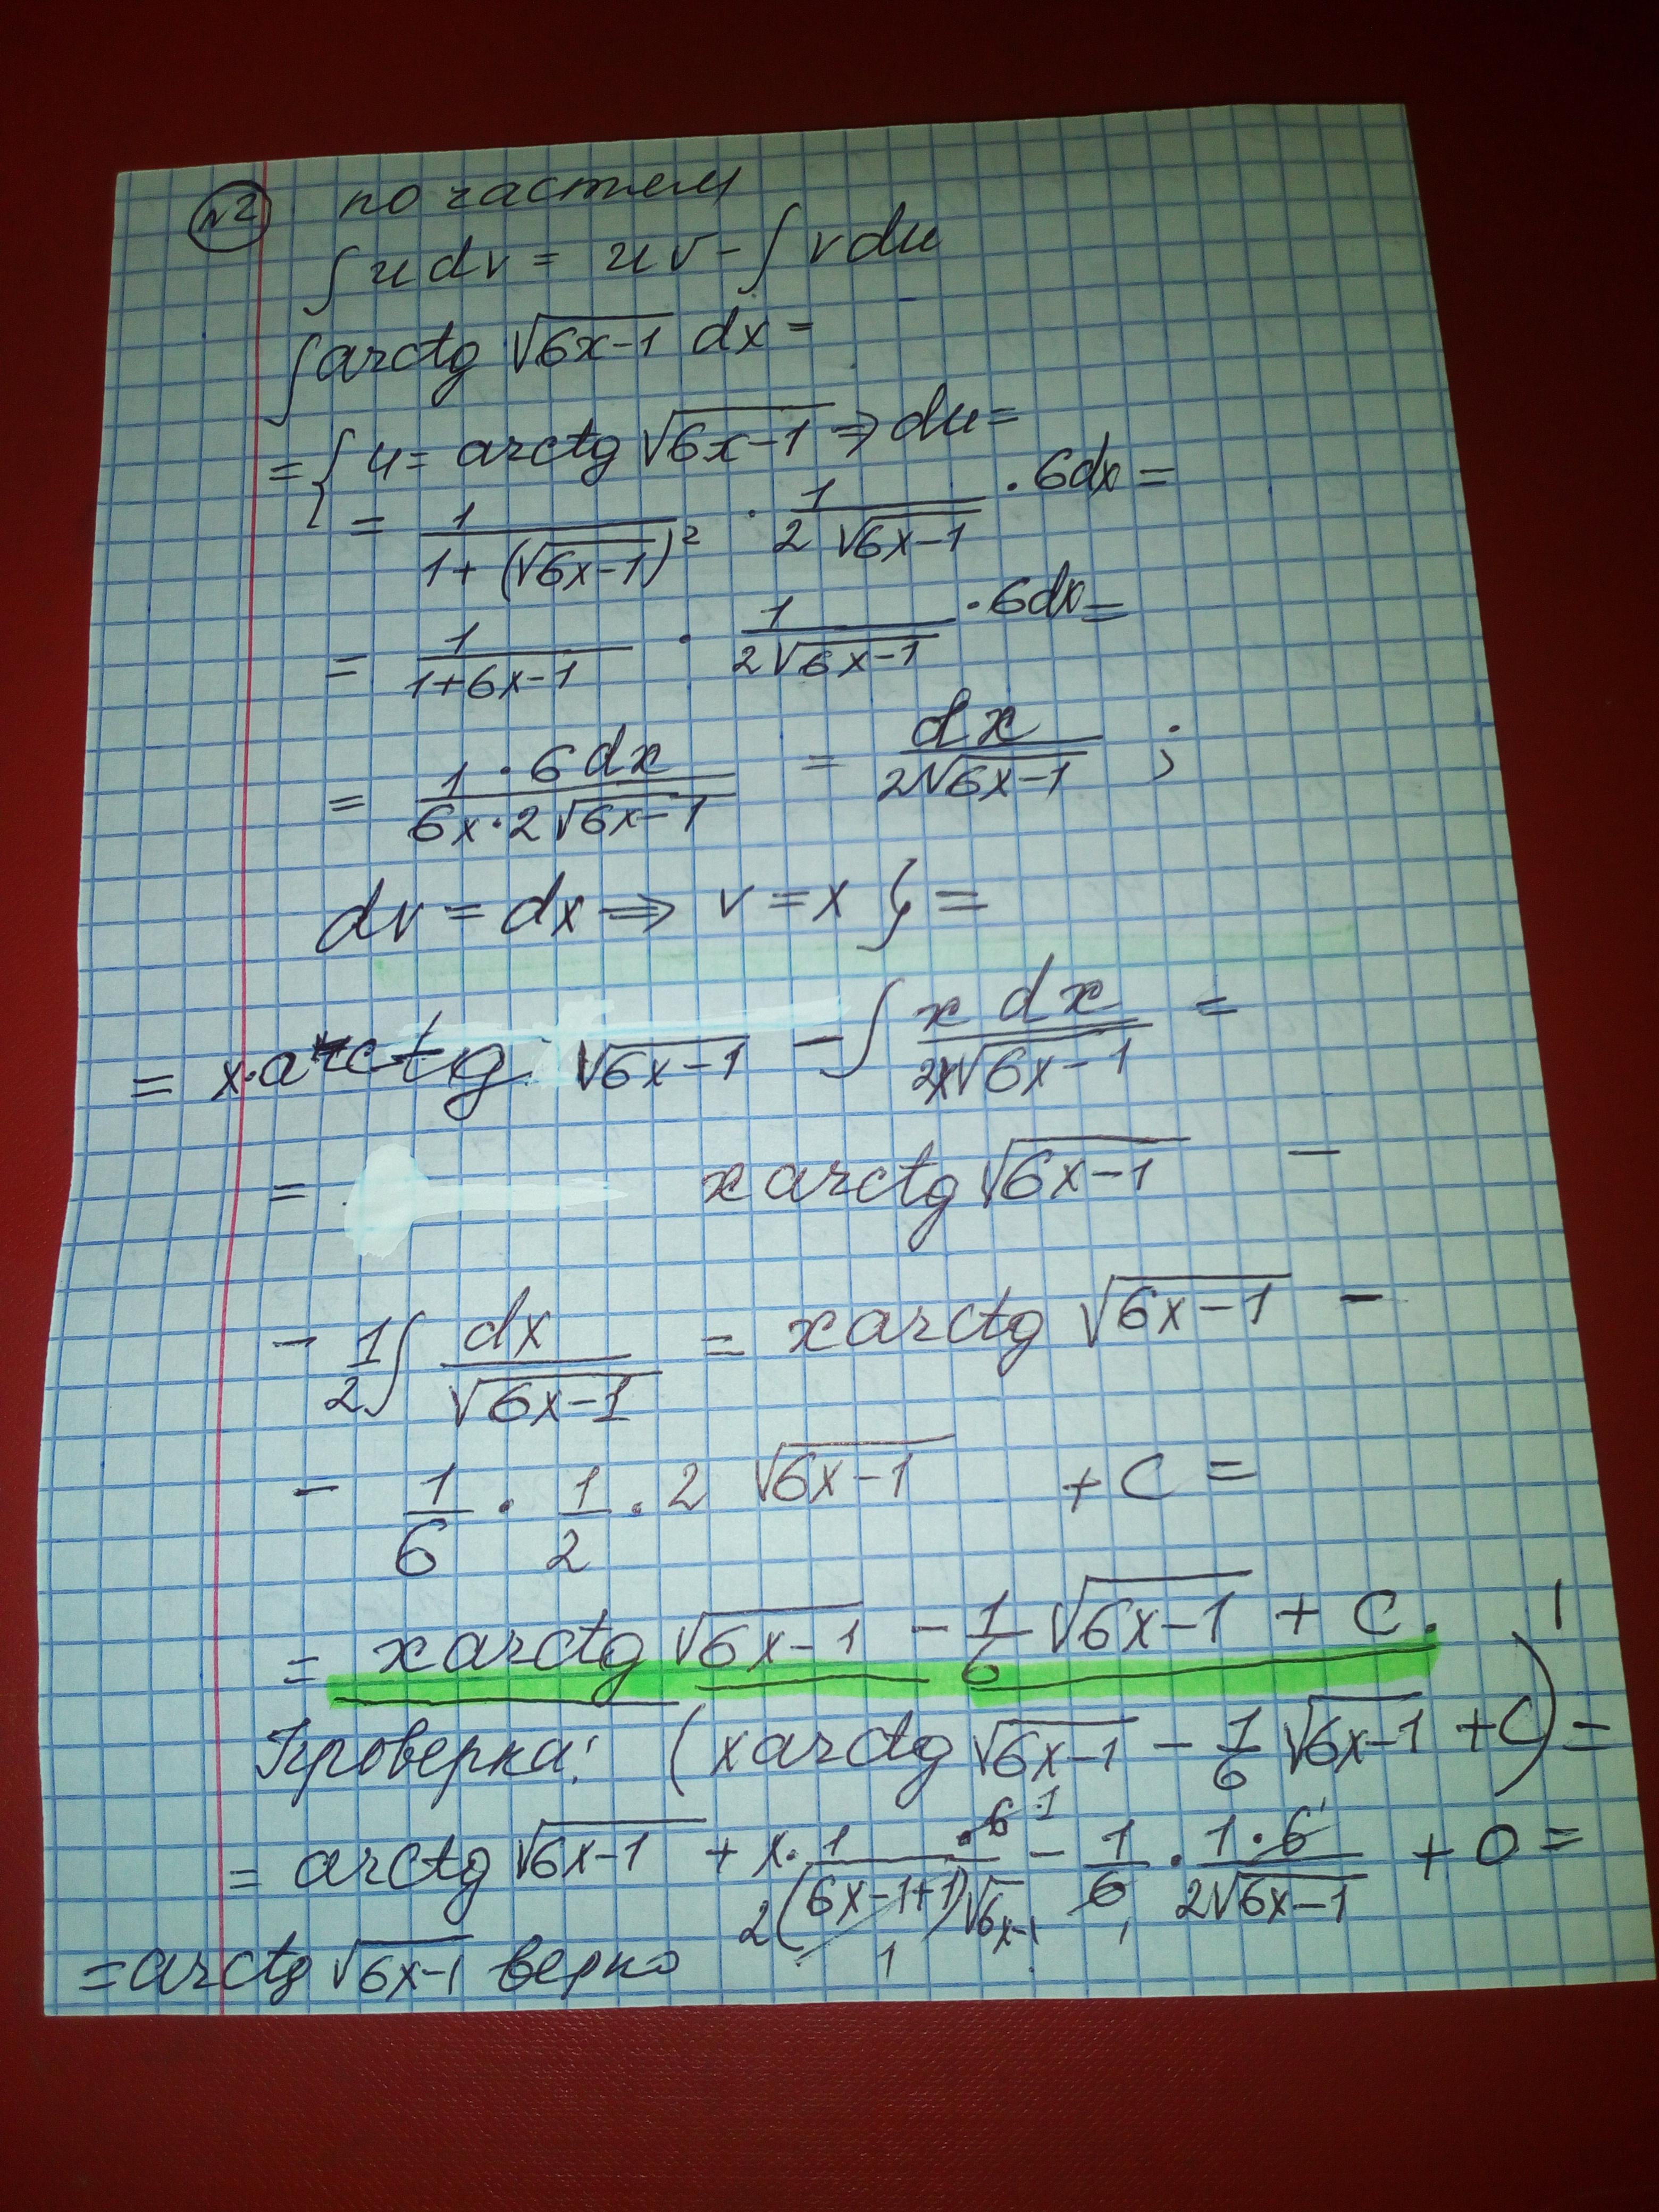 №2 по частям
∫ u dv = u v - ∫ v du
∫ arctg √(6x-1) dx =
= { u = arctg √(6x-1) ⇒ du =
= 1/(1+(√(6x-1))²) · 1/(2√(6x-1)) · 6dx =
= 1/(1+6x-1) · 1/(2√(6x-1)) · 6dx =
= (1·6dx)/(6x·2√(6x-1)) = dx/(2√(6x-1)) ;
dv = dx ⇒ v = x } =
= x·arctg √(6x-1) - ∫ x dx/(2x√(6x-1)) =
= x arctg √(6x-1) -
- 1/2 ∫ dx/√(6x-1) = x arctg √(6x-1) -
- 1/6 · 1/2 · 2 √(6x-1) + C =
= x arctg √(6x-1) - 1/6 √(6x-1) + C.
Проверка: (x arctg √(6x-1) - 1/6 √(6x-1) + C)' =
= arctg √(6x-1) + x · (1·6 1)/(2(6x-1+1)√(6x-1) 1) - 1/6 1 · (1·6 1)/(2√(6x-1)) + 0 =
= arctg √(6x-1) верно